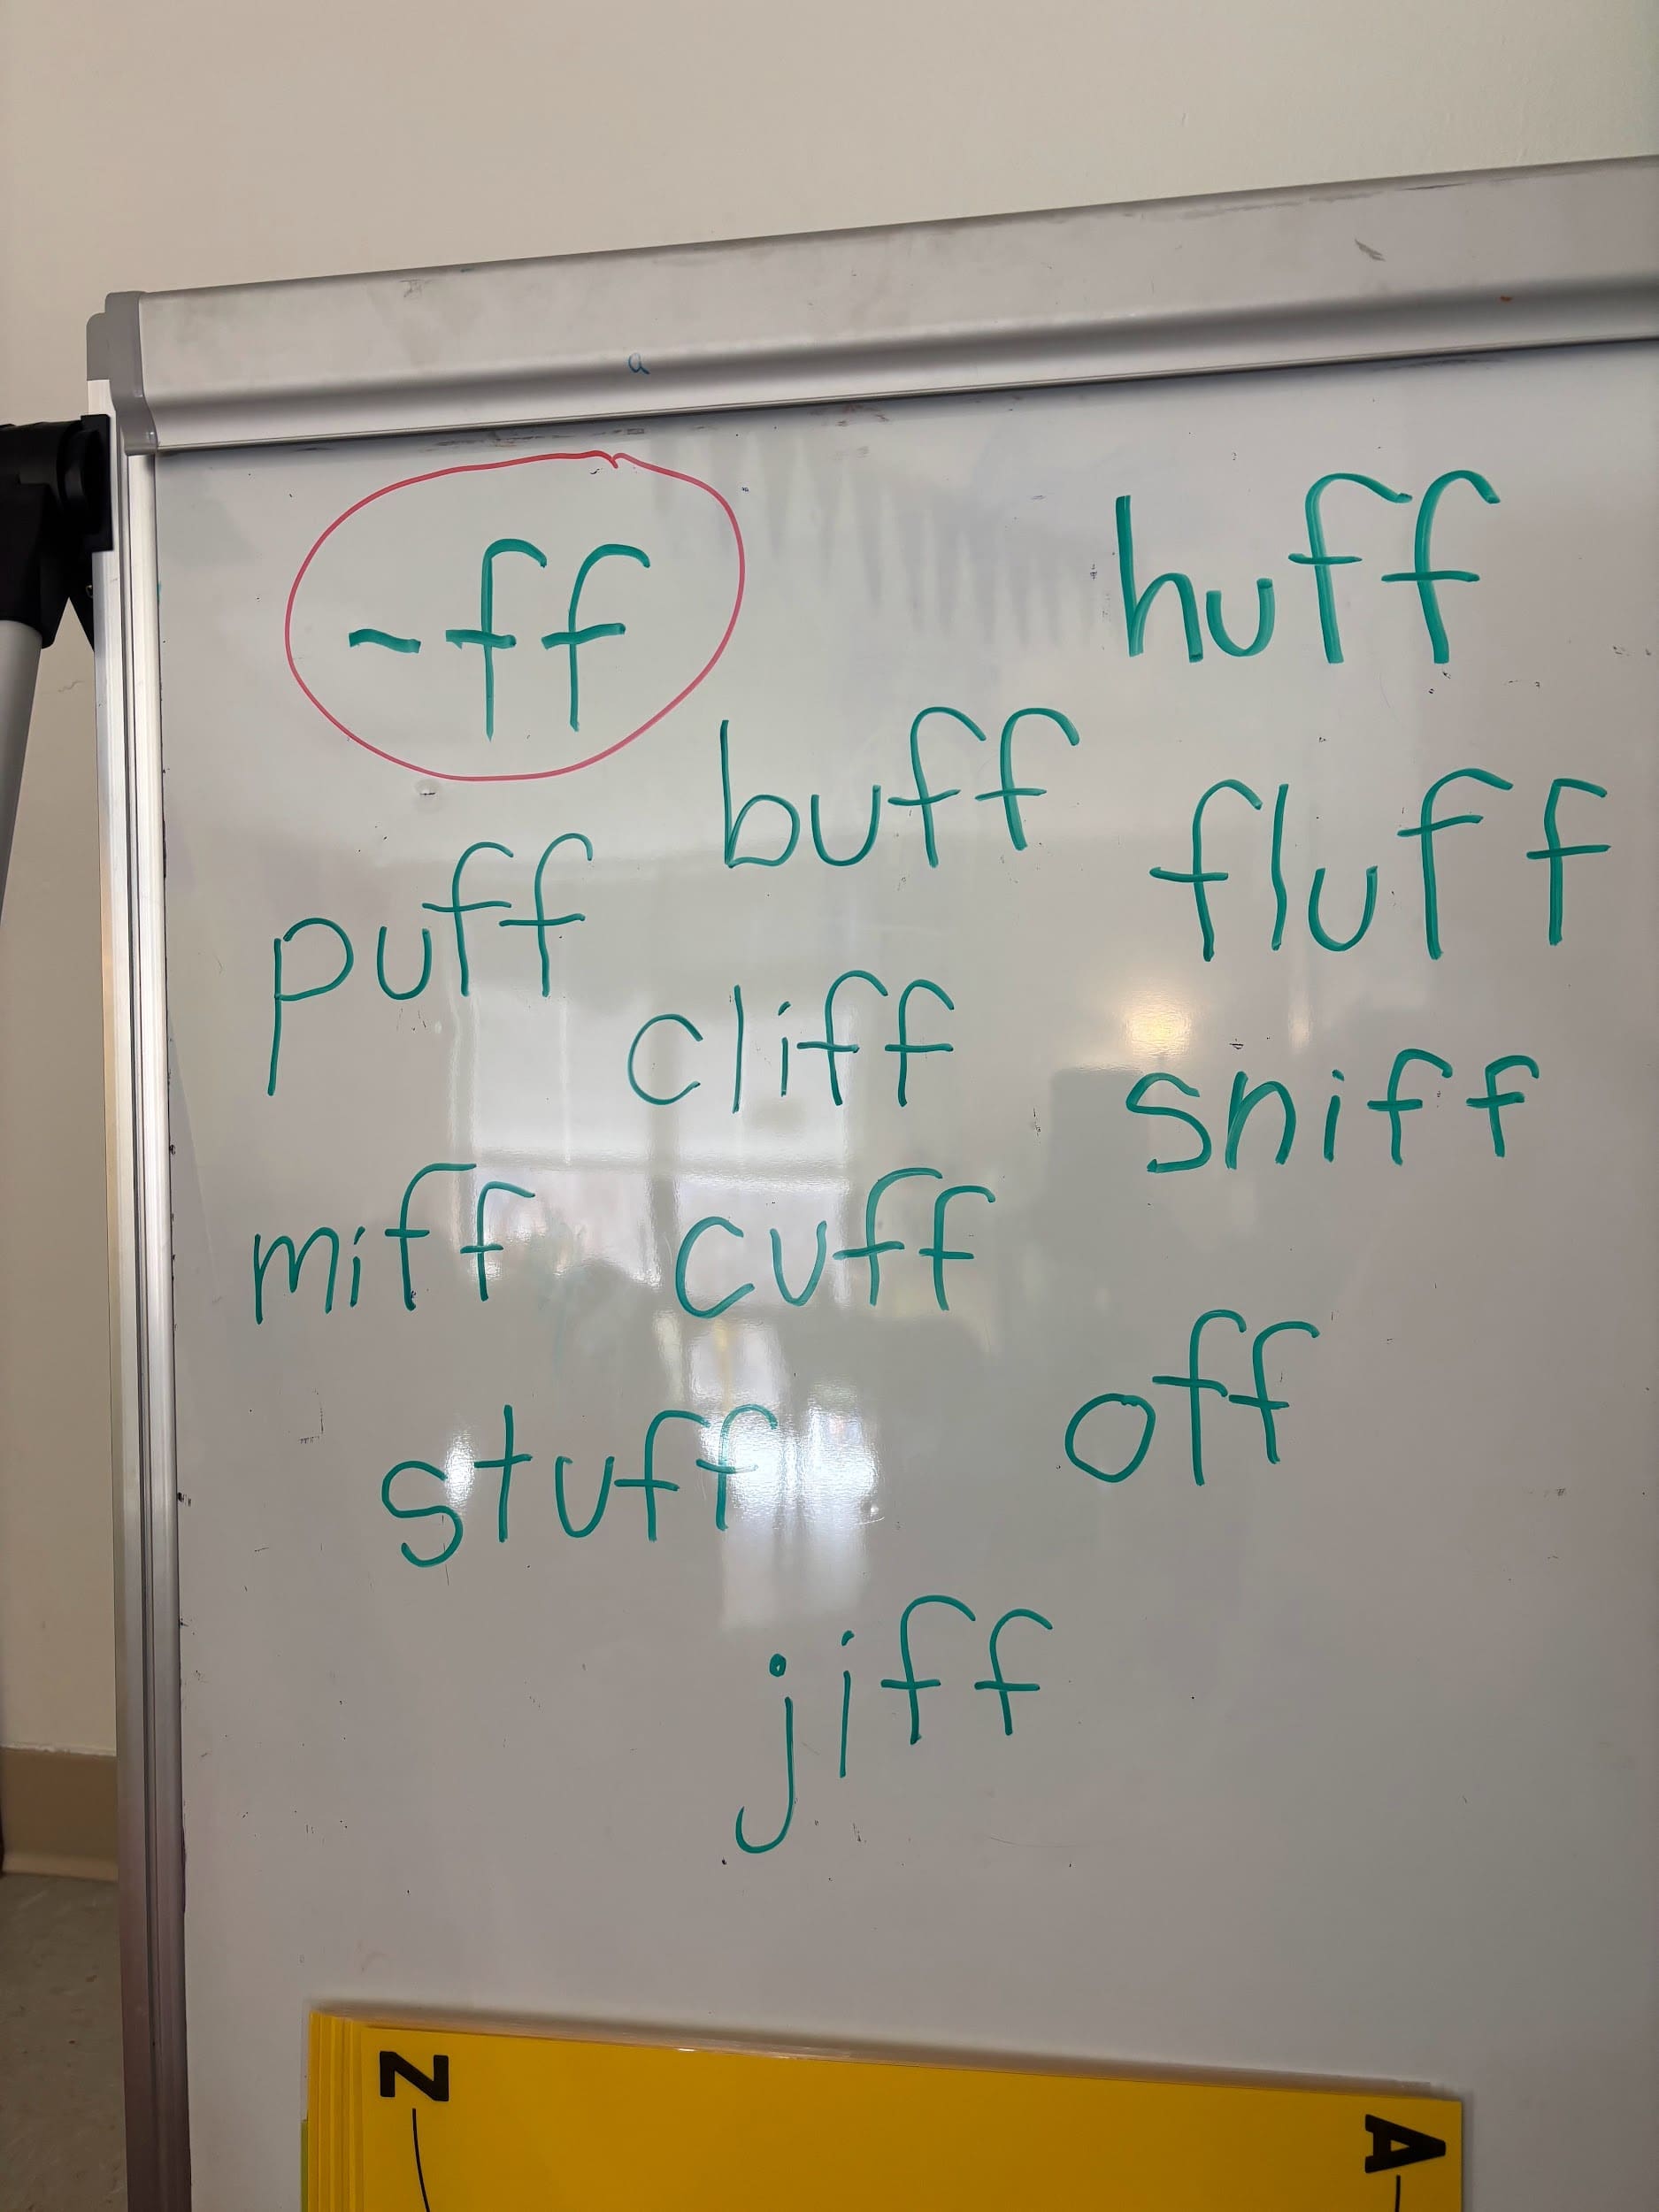 a
-ff
huff
buff
fluff
puff
cliff
sniff
miff
cuff
off
stuff
jiff
Z
A